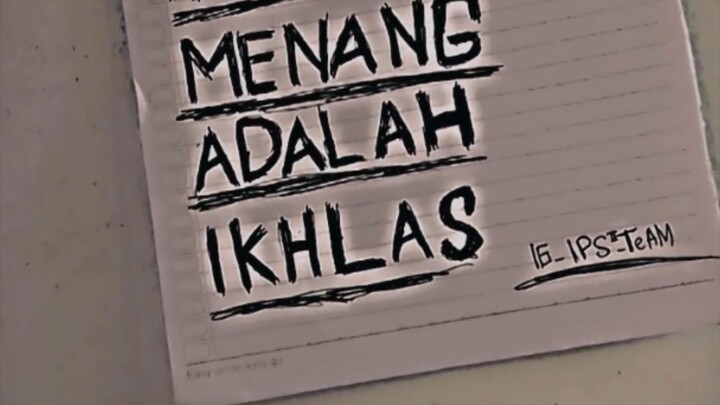 MENANG
ADALAH
IKHLAS
IG_IPS"_TeAM